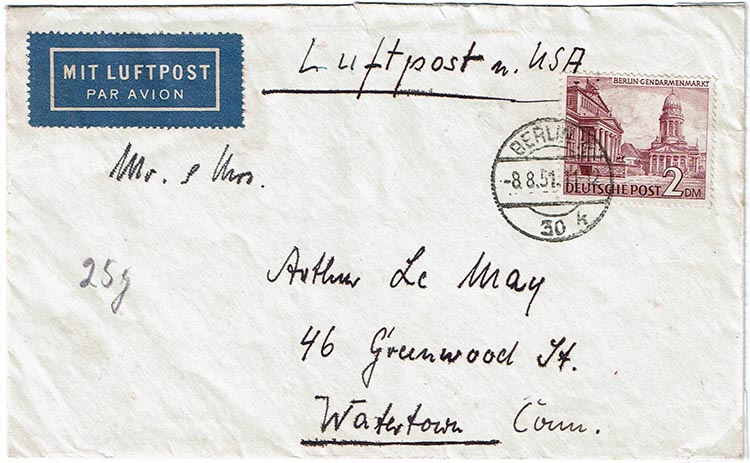 Luftpost n. USA
MIT LUFTPOST
PAR AVION
BERLIN-GENDARMENMARKT
DEUTSCHE POST 2 DM
BERLIN
-8.8.51.11-12
30 k
Mr. & Mrs.
25g
Arthur Le May
46 Greenwood St.
Watertown Conn.